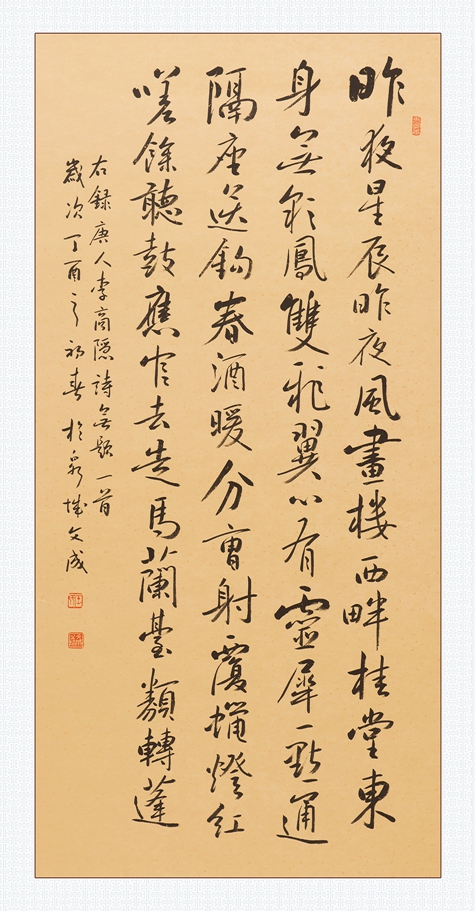 昨夜星辰昨夜風畫楼西畔桂堂東
身無彩鳳雙飛翼心有靈犀一點通
隔座送鈎春酒暖分曹射覆蠟燈紅
嗟餘聽鼓應官去走馬蘭臺類轉蓬
右録唐人李商隱詩無題一首
歲次丁酉之初春於泉城文成